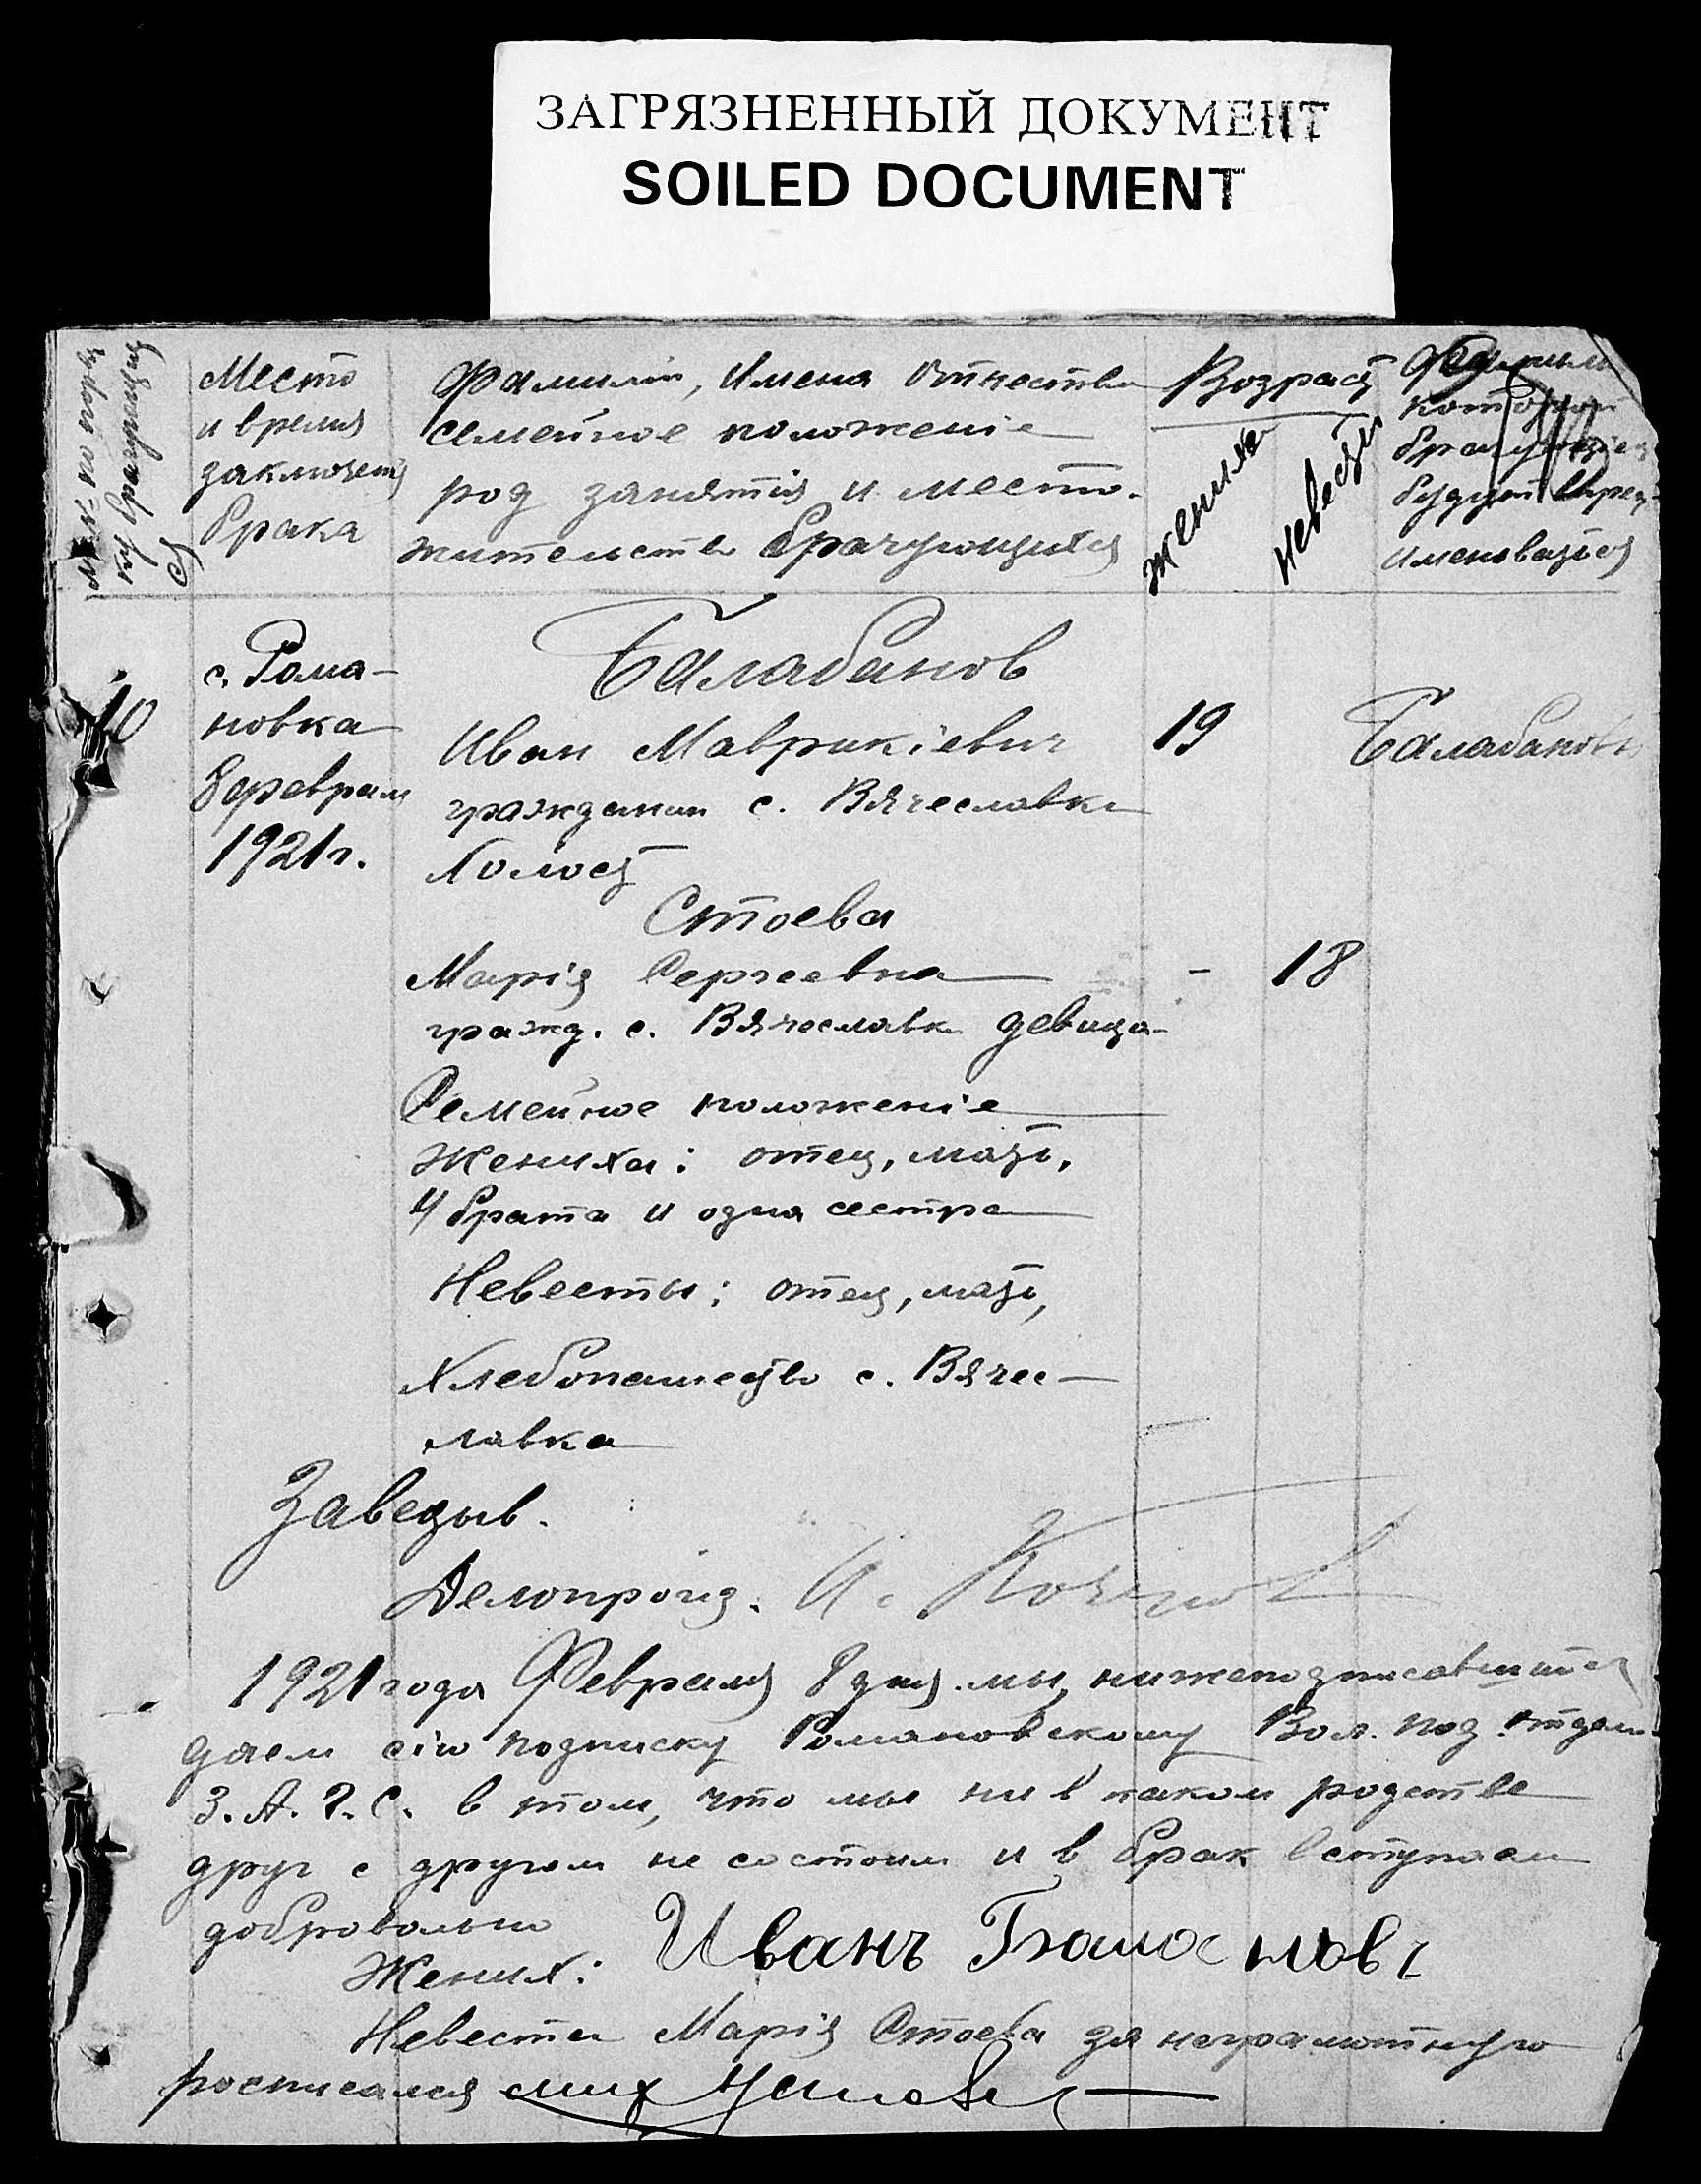 ЗАГРЯЗНЕННЫЙ ДОКУМЕНТ
SOILED DOCUMENT
Место
и время
заключетя
брака
Фамилии, Имена Отчества
семейное положеніе
род занятія и место-
жительство брачующихся
Возраст
жениха
невесты
Фамилия
которой
будут впред
именоваться
10
с. Рома-
новка
8 февраля
1921 г.
Балабанов
Иван Маврикіевич
19
Балабановы
гражданин с. Вячеславки
Холост
Стоева
Марія Сергеевна
– 18
гражд. с. Вячеславки девица
Семейное положеніе
Жениха: отец, мать,
4 брата и одна сестра
Невесты: отец, мать,
Хлебопашество с. Вячес-
лавка
Заведыв.
Делопроизв. И.
1921 года Февраля 8 дня. мы, нижеподписавшиеся
даем сію подписку Романовскому Вол. под. отдел.
З.А.Г.С. в том, что мы ни в каком родстве
друг с другом не состоим и в брак вступаем
добровольно
Жених: Иванъ
Невеста Марія Стоева за неграмотную
росписался